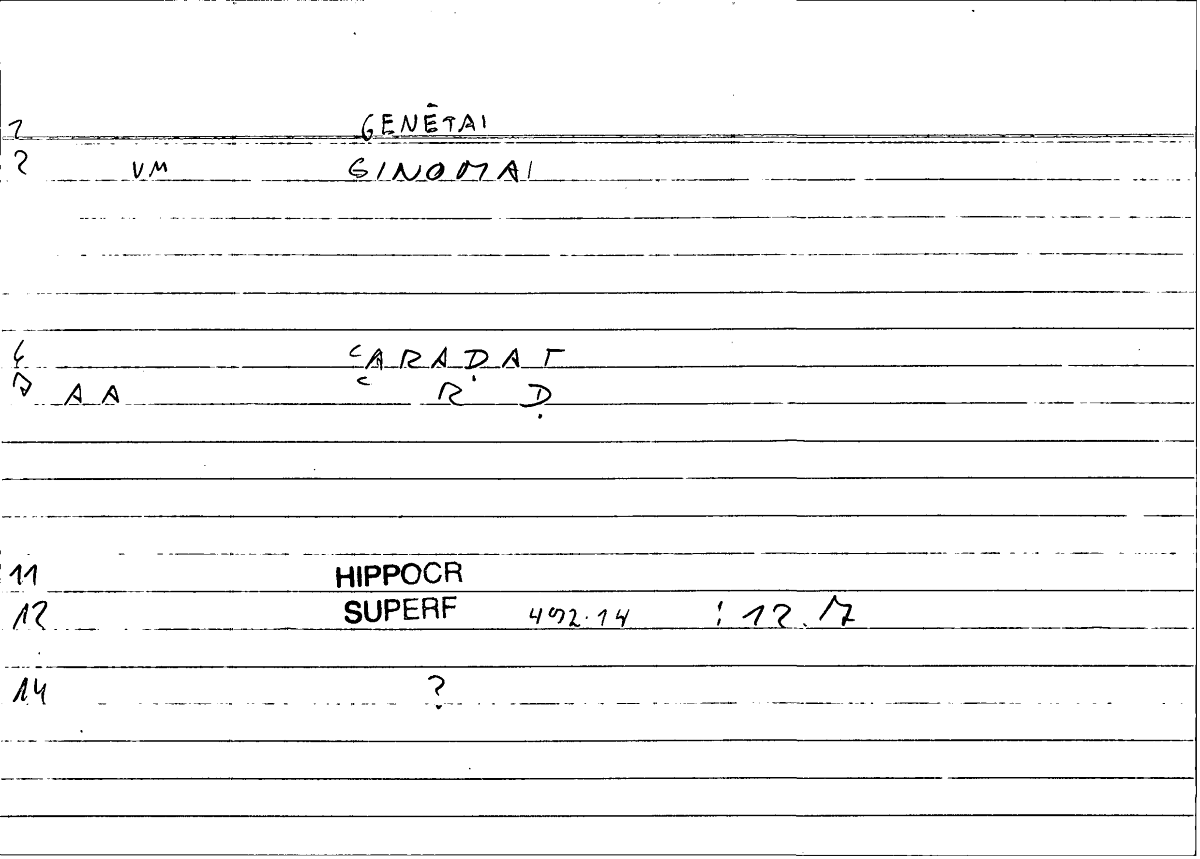 1 GENĒTAI
2 VM GINOMAI
6 ʿARAḌAT
AA ʿ R Ḍ
11 HIPPOCR
12 SUPERF 492.14 : 12.17
14 ?